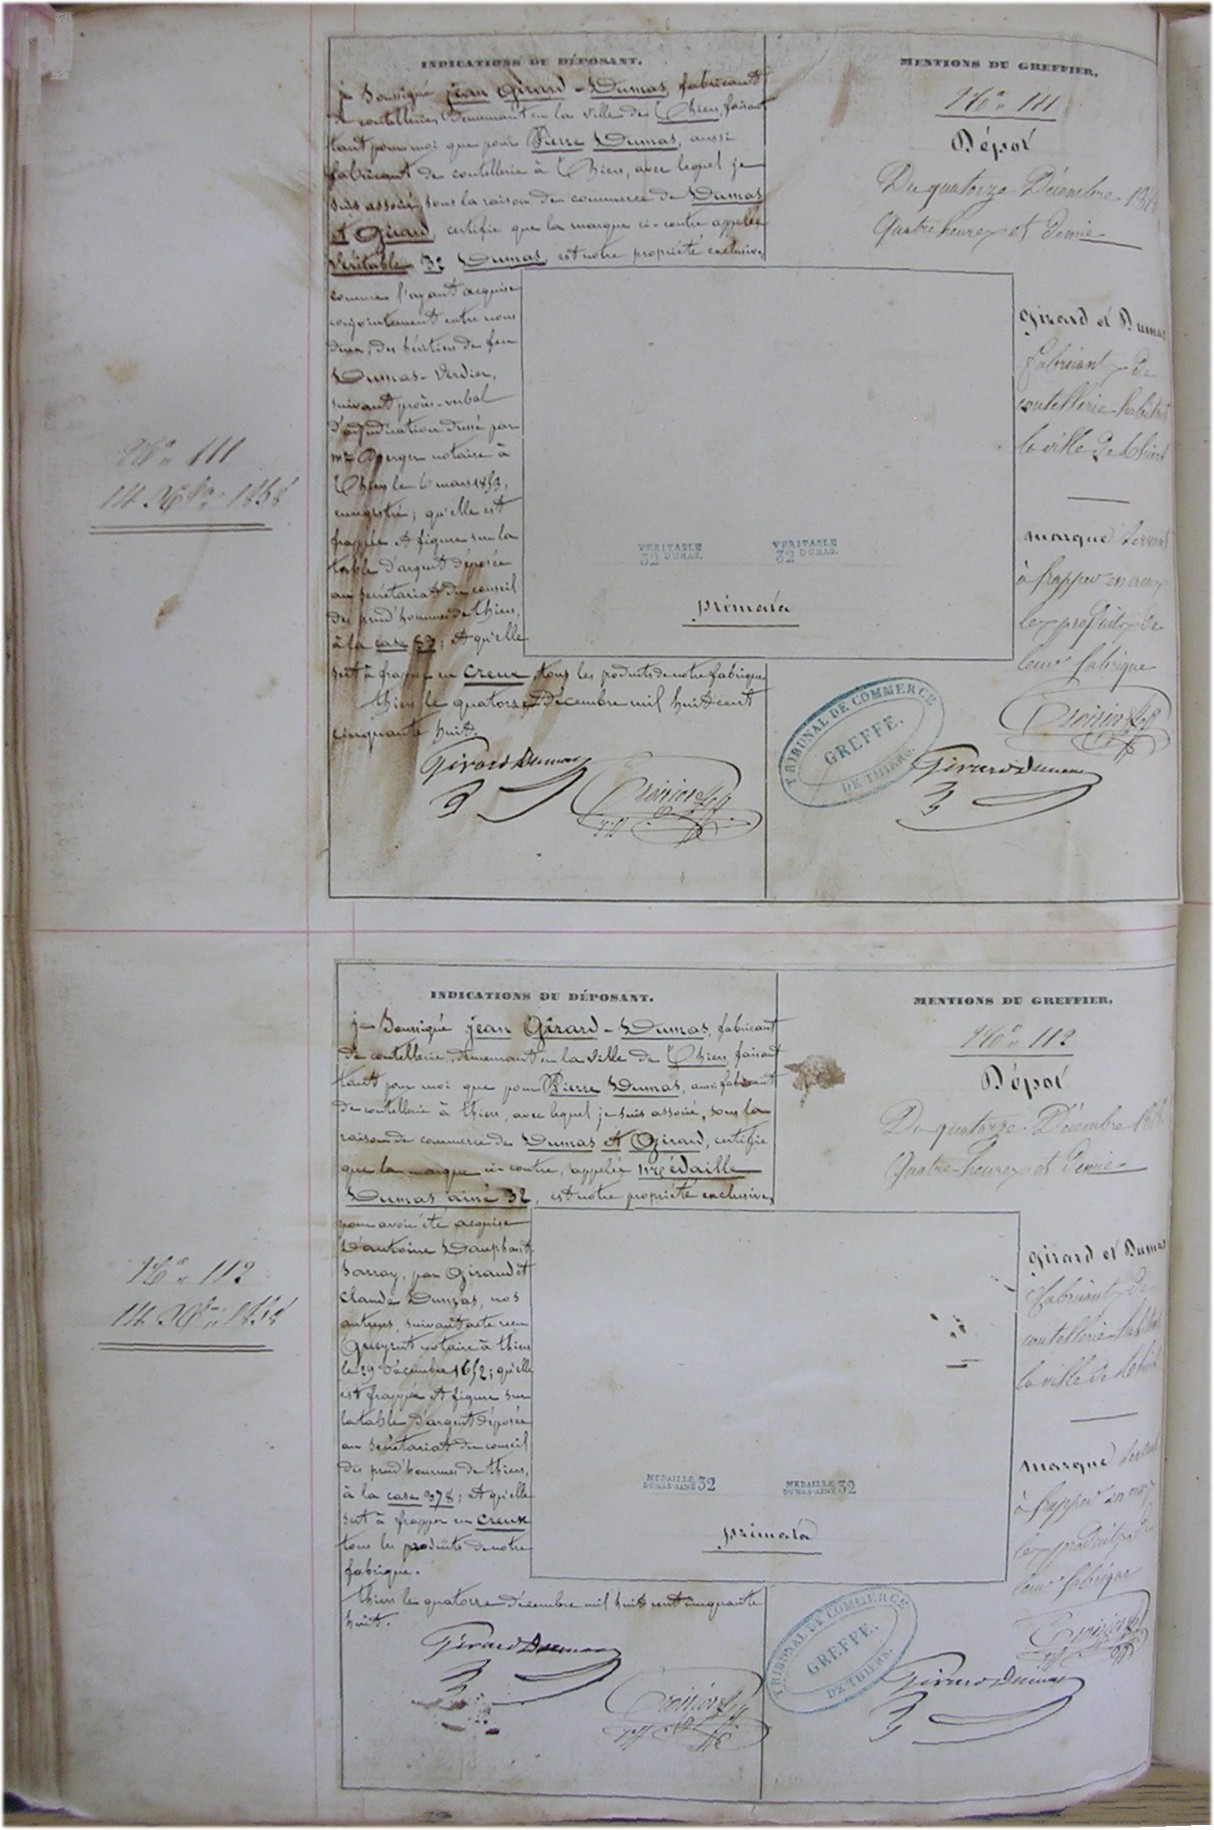 INDICATIONS DU DÉPOSANT.
je Soussigné jean Girard - Dumas, fabricant
de coutellerie, demeurant en la ville de Thiers, faisant
tant pour moi que pour Pierre Dumas, aussi
fabricant de coutellerie à Thiers, avec lequel je
suis associé, sous la raison de commerce de Dumas
et Girard, certifie que la marque ci-contre appelée
Véritable 32 Dumas, est notre propriété exclusive,
comme l'ayant acquise
conjointement entre nous
deux, des héritiers de feu
Dumas-Verdier,
suivant procès-verbal
d'adjudication dressé par
notaire à
Thiers le 6 mars 1853,
enregistré; qu'elle est
frappée et figure sur la
table d'argent déposée
au secrétariat du conseil
des prud'hommes de Thiers,
à la case ; et qu'elle
sert à frapper en creux, tous les produits de notre fabrique
Thiers le quatorze Décembre mil huit cent
cinquante huit.
Girard Dumas
VERITABLE
32 DUMAS.
VERITABLE
32 DUMAS.
primata
MENTIONS DU GREFFIER.
N° 111
Dépôt
Du quatorze Décembre 1858
Quatre heures et demie
Girard et Dumas
fabricants de
coutellerie habitant
la ville de Thiers
marque servant
à frapper en creux
les produits de
leur fabrique
TRIBUNAL DE COMMERCE
GREFFE.
DE THIERS.
Girard Dumas
N° 111
14 Xbre 1858
INDICATIONS DU DÉPOSANT.
je Soussigné jean Girard - Dumas, fabricant
de coutellerie, demeurant en la ville de Thiers, faisant
tant pour moi que pour Pierre Dumas, aussi fabricant
de coutellerie à Thiers, avec lequel je suis associé, sous la
raison de commerce de Dumas et Girard, certifie
que la marque ci-contre, appelée médaille
Dumas ainé 32, est notre propriété exclusive,
pour avoir été acquise
d'antoine Dauphant
par Giraud et
Claude Dumas, nos
auteurs, suivant acte reçu
notaire à Thiers
le 29 décembre ; qu'elle
est frappée et figure sur
la table d'argent déposée
au secrétariat du conseil
des prud'hommes de Thiers,
à la case 378; et qu'elle
sert à frapper en creux
tous les produits de notre
fabrique.
Thiers le quatorze décembre mil huit cent cinquante
huit.
Girard Dumas
MEDAILLE
DUMAS-AINÉ 32
MEDAILLE
DUMAS-AINÉ 32
primata
MENTIONS DU GREFFIER.
N° 112
Dépôt
Du quatorze Décembre 1858
Quatre heures et demie
Girard et Dumas
fabricants de
coutellerie habitant
la ville de Thiers
marque servant
à frapper en creux
les produits de
leur fabrique
TRIBUNAL DE COMMERCE
GREFFE.
DE THIERS.
Girard Dumas
N° 112
14 Xbre 1858